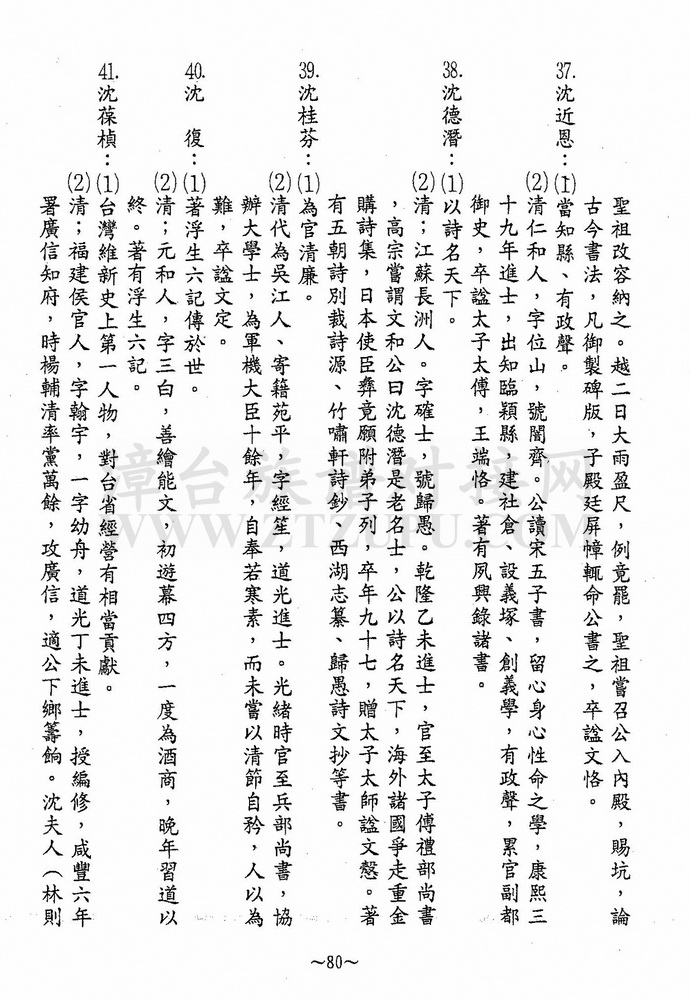 聖祖改容納之。越二日大雨盈尺，例竟罷，聖祖嘗召公入內殿，賜坑，論
古今書法，凡御製碑版，子殿廷屏幛輒命公書之，卒諡文恪。
37.沈近恩：(1)當知縣、有政聲。
(2)清仁和人，字位山，號闇齊。公讀宋五子書，留心身心性命之學，康熙三
十九年進士，出知臨穎縣，建社倉、設義塚、創義學，有政聲，累官副都
御史，卒諡太子太傅，王端恪。著有夙興錄諸書。
38.沈德潛：(1)以詩名天下。
(2)清；江蘇長洲人。字確士，號歸愚。乾隆乙未進士，官至太子傅禮部尚書
，高宗嘗謂文和公曰沈德潛是老名士，公以詩名天下，海外諸國爭走重金
購詩集，日本使臣彝竟願附弟子列，卒年九十七，贈太子太師諡文慤。著
有五朝詩別裁詩源、竹嘯軒詩鈔、西湖志纂、歸愚詩文抄等書。
39.沈桂芬：(1)為官清廉。
(2)清代為吳江人、寄籍苑平，字經笙，道光進士。光緒時官至兵部尚書，協
辦大學士，為軍機大臣十餘年，自奉若寒素，而未嘗以清節自矜，人以為
難，卒諡文定。
40.沈　復：(1)著浮生六記傳於世。
(2)清；元和人，字三白，善繪能文，初遊幕四方，一度為酒商，晚年習道以
終。著有浮生六記。
41.沈葆楨：(1)台灣維新史上第一人物，對台省經營有相當貢獻。
(2)清；福建侯官人，字翰宇，一字幼舟，道光丁未進士，授編修，咸豐六年
署廣信知府，時楊輔清率黨萬餘，攻廣信，適公下鄉籌餉。沈夫人（林則
～80～
漳台族譜對接网
WWW.ZTZUPU.COM